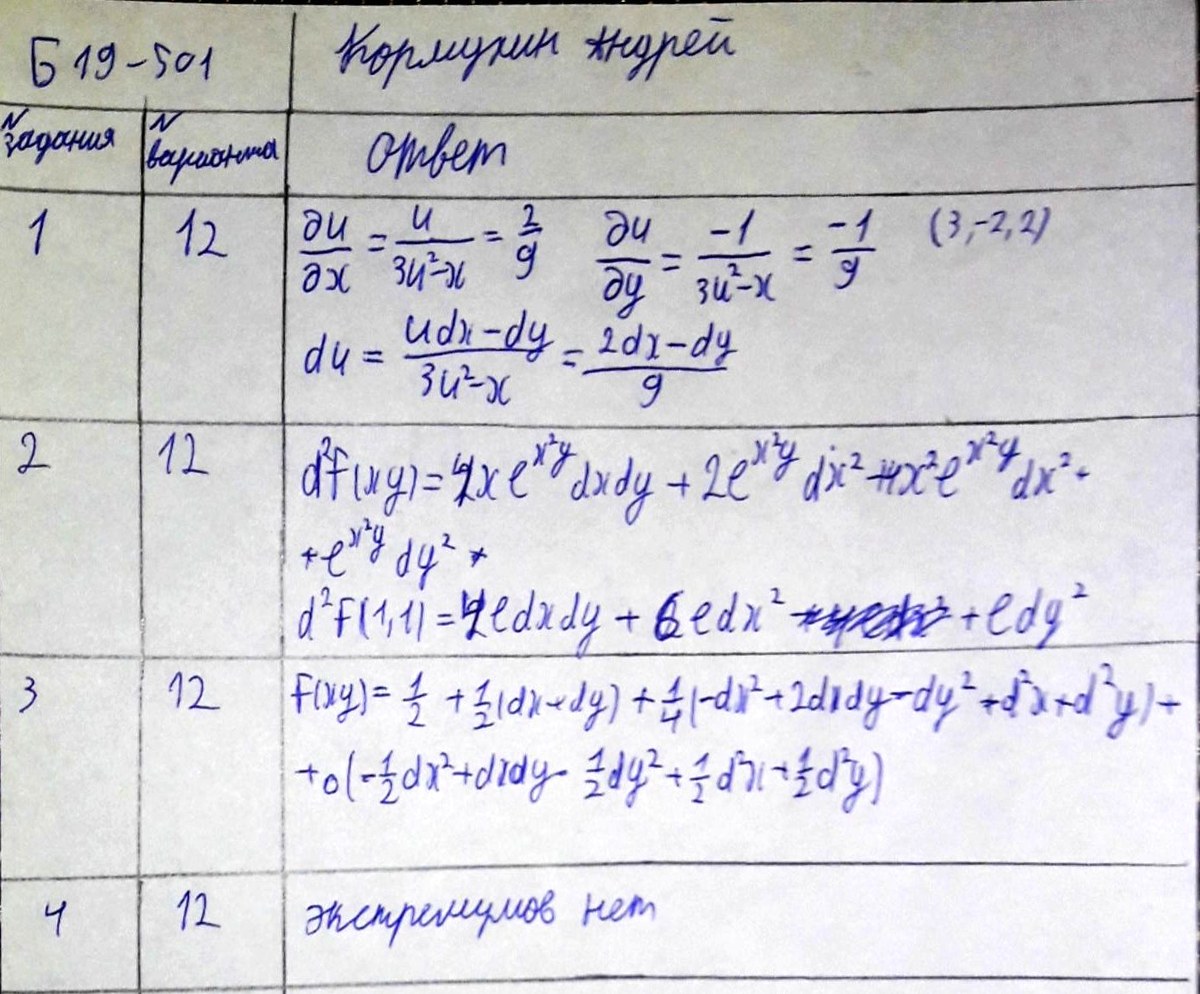 Б19-501 Кормухин Андрей
N задания N варианта Ответ
1 12 ∂u/∂x = u/(3u²-x) = 2/9 ∂u/∂y = -1/(3u²-x) = -1/9 (3,-2,2)
du = (udx-dy)/(3u²-x) = (2dx-dy)/9
2 12 d²f(xy)=4xe^(x²y)dxdy + 2e^(x²y)dx² + 4x²e^(x²y)dx² +
+e^(x²y)dy²
d²f(1,1)=4edxdy + 6edx² + edy²
3 12 f(xy)= 1/2 + 1/2(dx+dy) + 1/4(-dx²+2dxdy-dy²+d²x+d²y)+
+o(-1/2dx²+dxdy-1/2dy²+1/2d²x+1/2d²y)
4 12 экстремумов нет